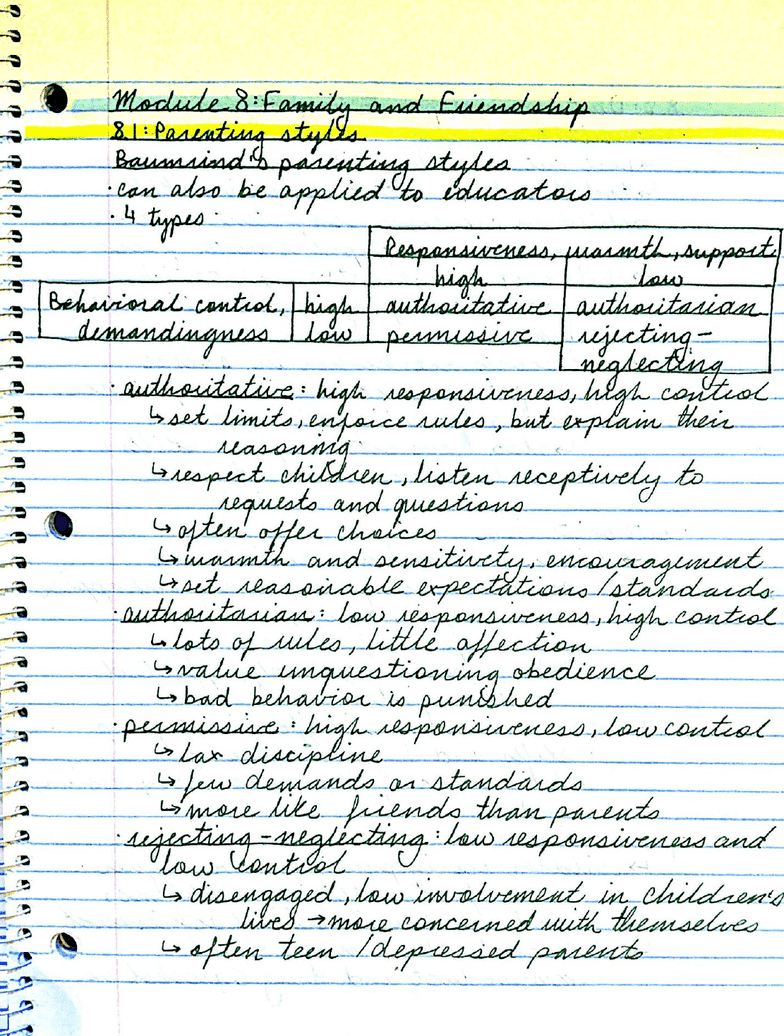 Module 8: Family and Friendship
8.1: Parenting styles
Baumrind's parenting styles
· can also be applied to educators
· 4 types
Responsiveness, warmth, support
high low
Behavioral control, high authoritative authoritarian
demandingness low permissive rejecting-
neglecting
· authoritative: high responsiveness, high control
↳ set limits, enforce rules, but explain their
reasoning
↳ respect children, listen receptively to
requests and questions
↳ often offer choices
↳ warmth and sensitivity, encouragement
↳ set reasonable expectations/standards
· authoritarian: low responsiveness, high control
↳ lots of rules, little affection
↳ value unquestioning obedience
↳ bad behavior is punished
· permissive: high responsiveness, low control
↳ lax discipline
↳ few demands or standards
↳ more like friends than parents
· rejecting-neglecting: low responsiveness and
low control
↳ disengaged, low involvement in children's
lives → more concerned with themselves
↳ often teen/depressed parents